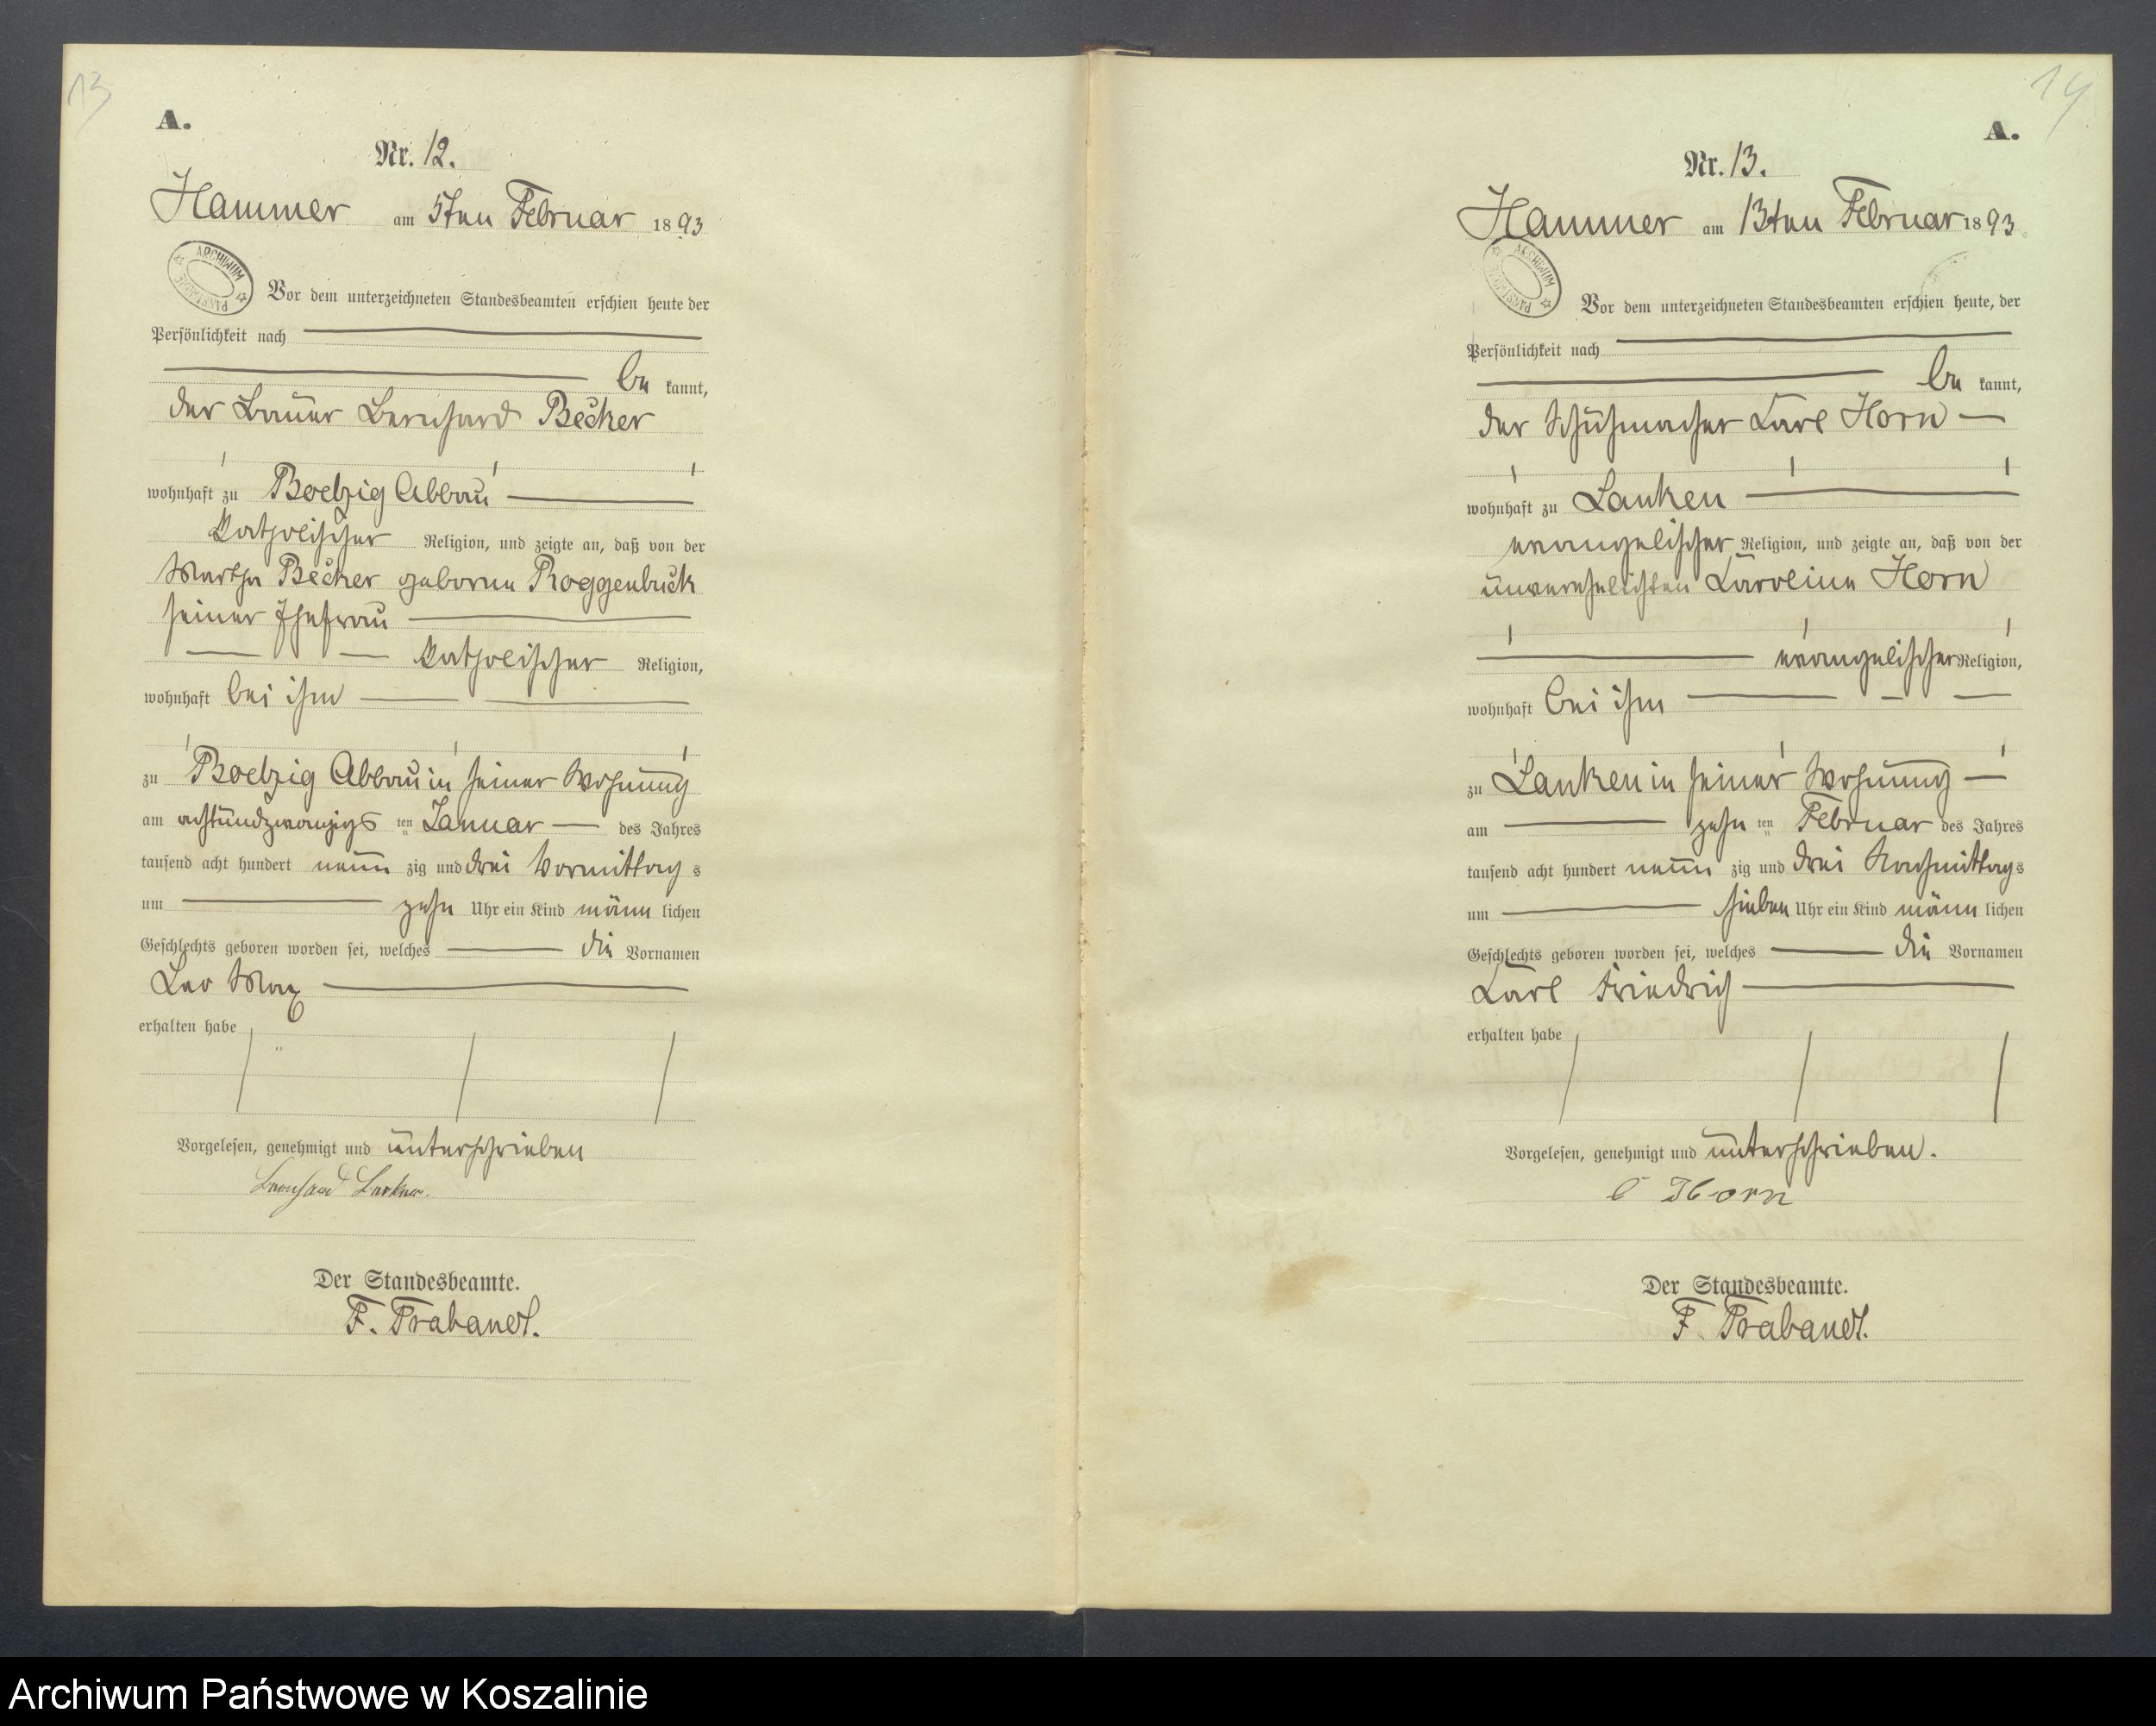 13
A.
Nr. 12.
Hammer am 5ten Februar 1893
ARCHIWUM PAŃSTWOWE
Vor dem unterzeichneten Standesbeamten erschien heute der
Persönlichkeit nach
be kannt,
der Bauer Bernhard Becker
wohnhaft zu Boelzig Abbau
katholischer Religion, und zeigte an, daß von der
Martha Becker geborne Roggenbuck
seiner Ehefrau
katholischer Religion,
wohnhaft bei ihm
zu Boelzig Abbau in seiner Wohnung
am achtundzwanzigs ten Januar des Jahres
tausend acht hundert neun zig und drei Vormittag s
um zehn Uhr ein Kind männ lichen
Geschlechts geboren worden sei, welches die Vornamen
Leo Max
erhalten habe
Vorgelesen, genehmigt und unterschrieben
Bernhard Becker.
Der Standesbeamte.
F. Prabandt.
14
A.
Nr. 13.
Hammer am 13ten Februar 1893
ARCHIWUM PAŃSTWOWE
Vor dem unterzeichneten Standesbeamten erschien heute, der
Persönlichkeit nach
be kannt,
der Schuhmacher Carl Horn
wohnhaft zu Lanken
evangelischer Religion, und zeigte an, daß von der
unverehelichten Caroline Horn
evangelischer Religion,
wohnhaft bei ihm
zu Lanken in seiner Wohnung
am zehn ten Februar des Jahres
tausend acht hundert neun zig und drei Nachmittags
um sieben Uhr ein Kind männ lichen
Geschlechts geboren worden sei, welches die Vornamen
Carl Friedrich
erhalten habe
Vorgelesen, genehmigt und unterschrieben.
C Horn
Der Standesbeamte.
F Prabandt.
Archiwum Państwowe w Koszalinie